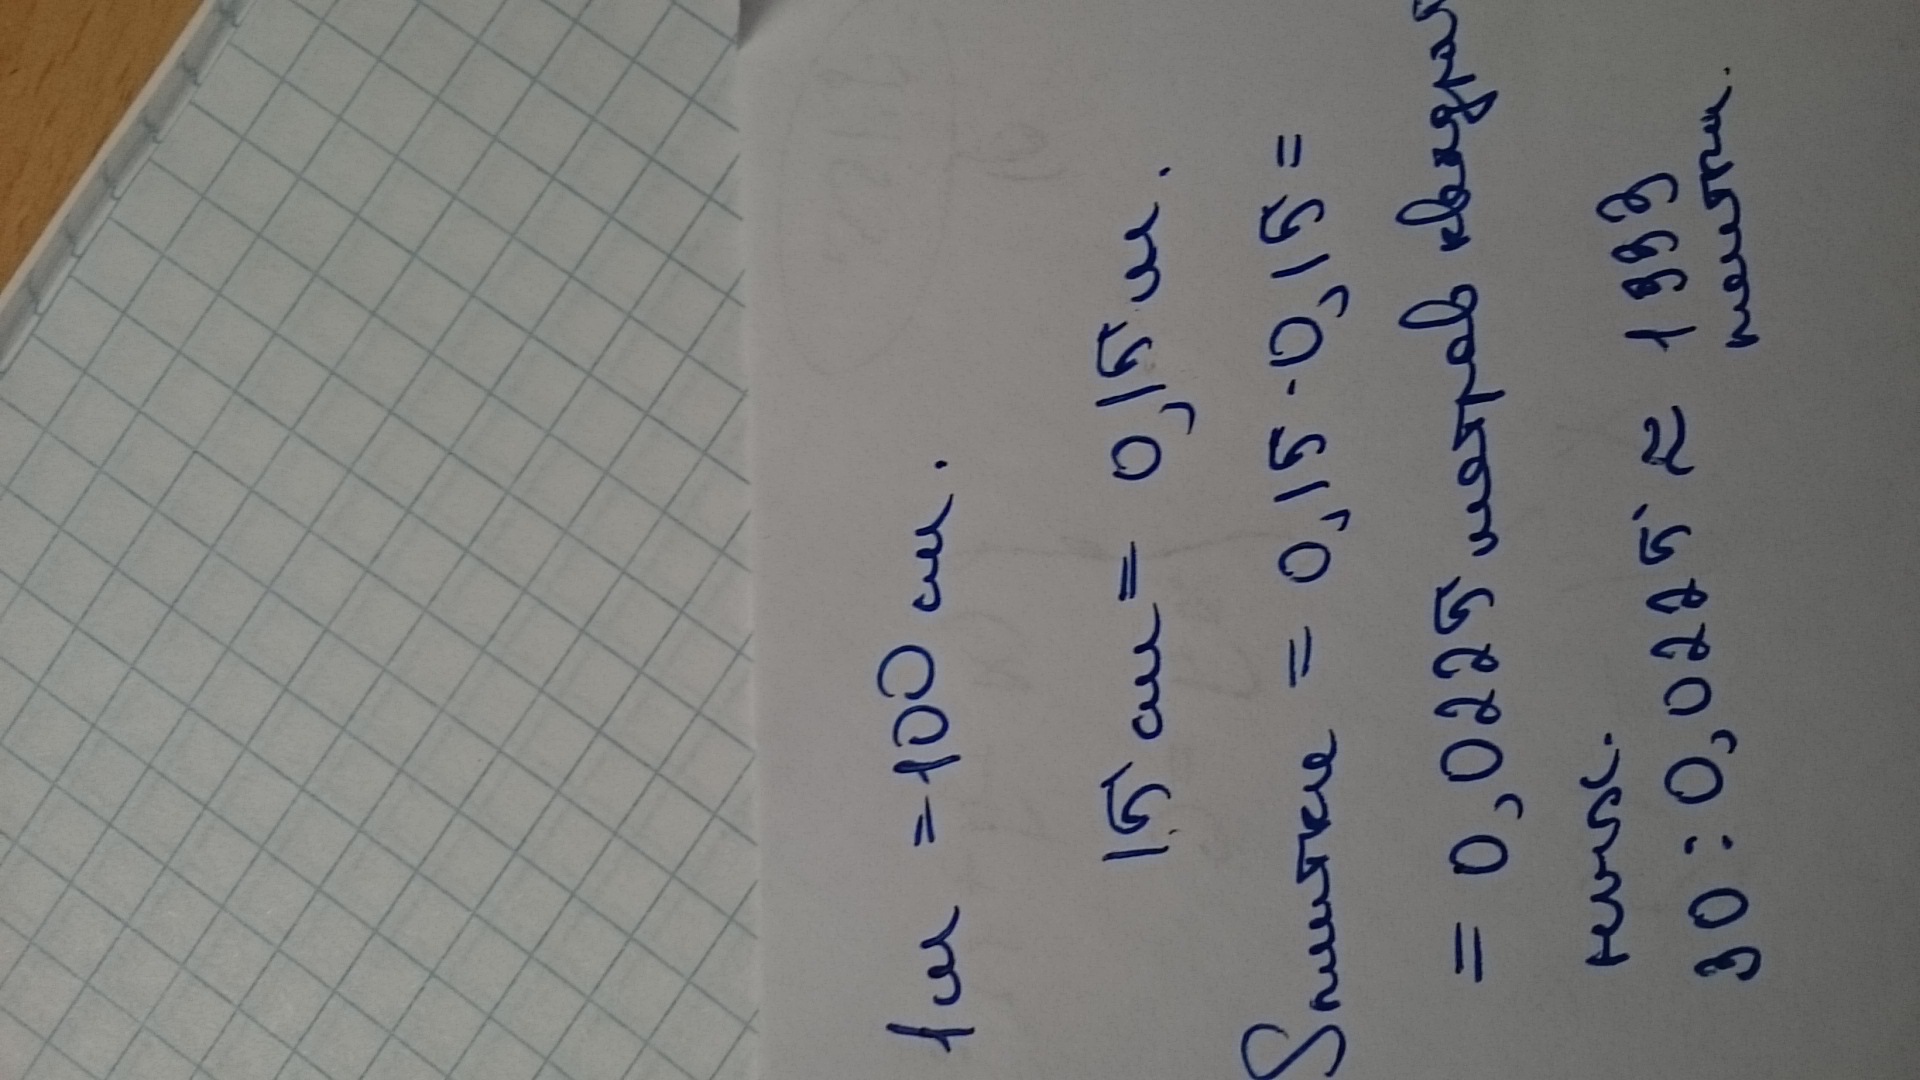 1м = 100 см.
15 см = 0,15 м.
Sплитки = 0,15 · 0,15 =
= 0,0225 метров квадрат
ных.
30 : 0,0225 ≈ 1333
плитки.